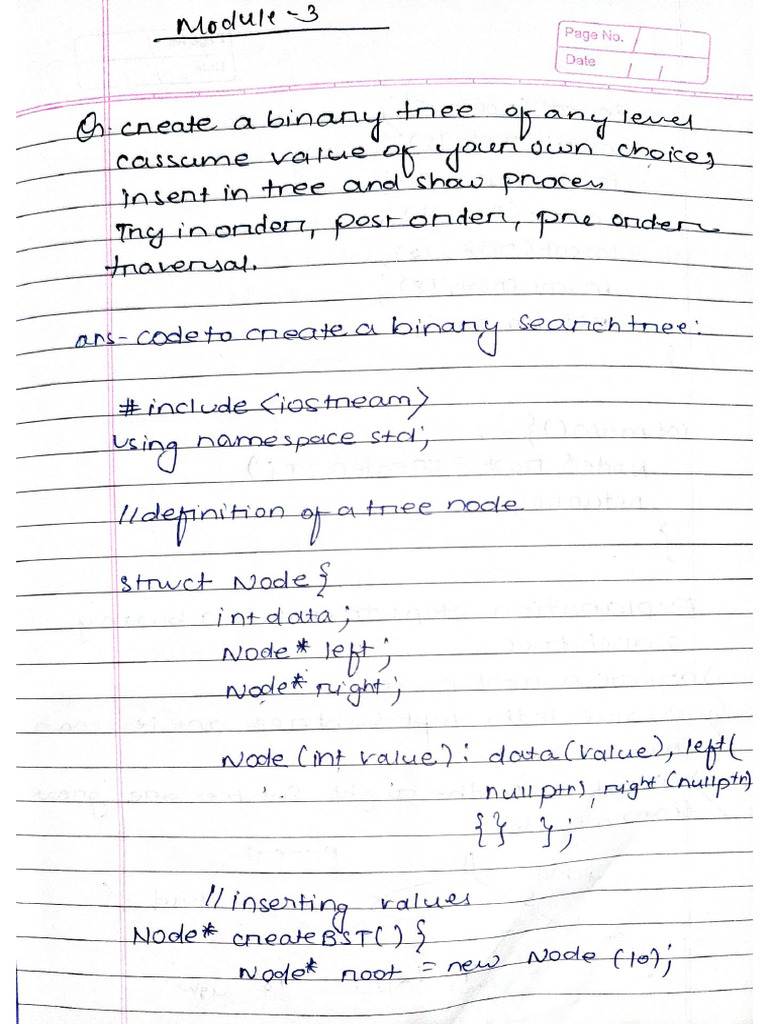 Module-3
Page No.
Date
Q. create a binary tree of any level
cassume value of your own choice,
insert in tree and show proces,
Try inorder, post order, pre order
traversal.
ans- code to create a binary search tree:
#include <iostream>
using namespace std;
//definition of a tree node
struct Node {
int data;
Node* left;
Node* right;
Node (int value): data(value), left(
nullptr), right (nullptr)
{} };
//inserting values
Node* createBST() {
Node* root = new Node (10);